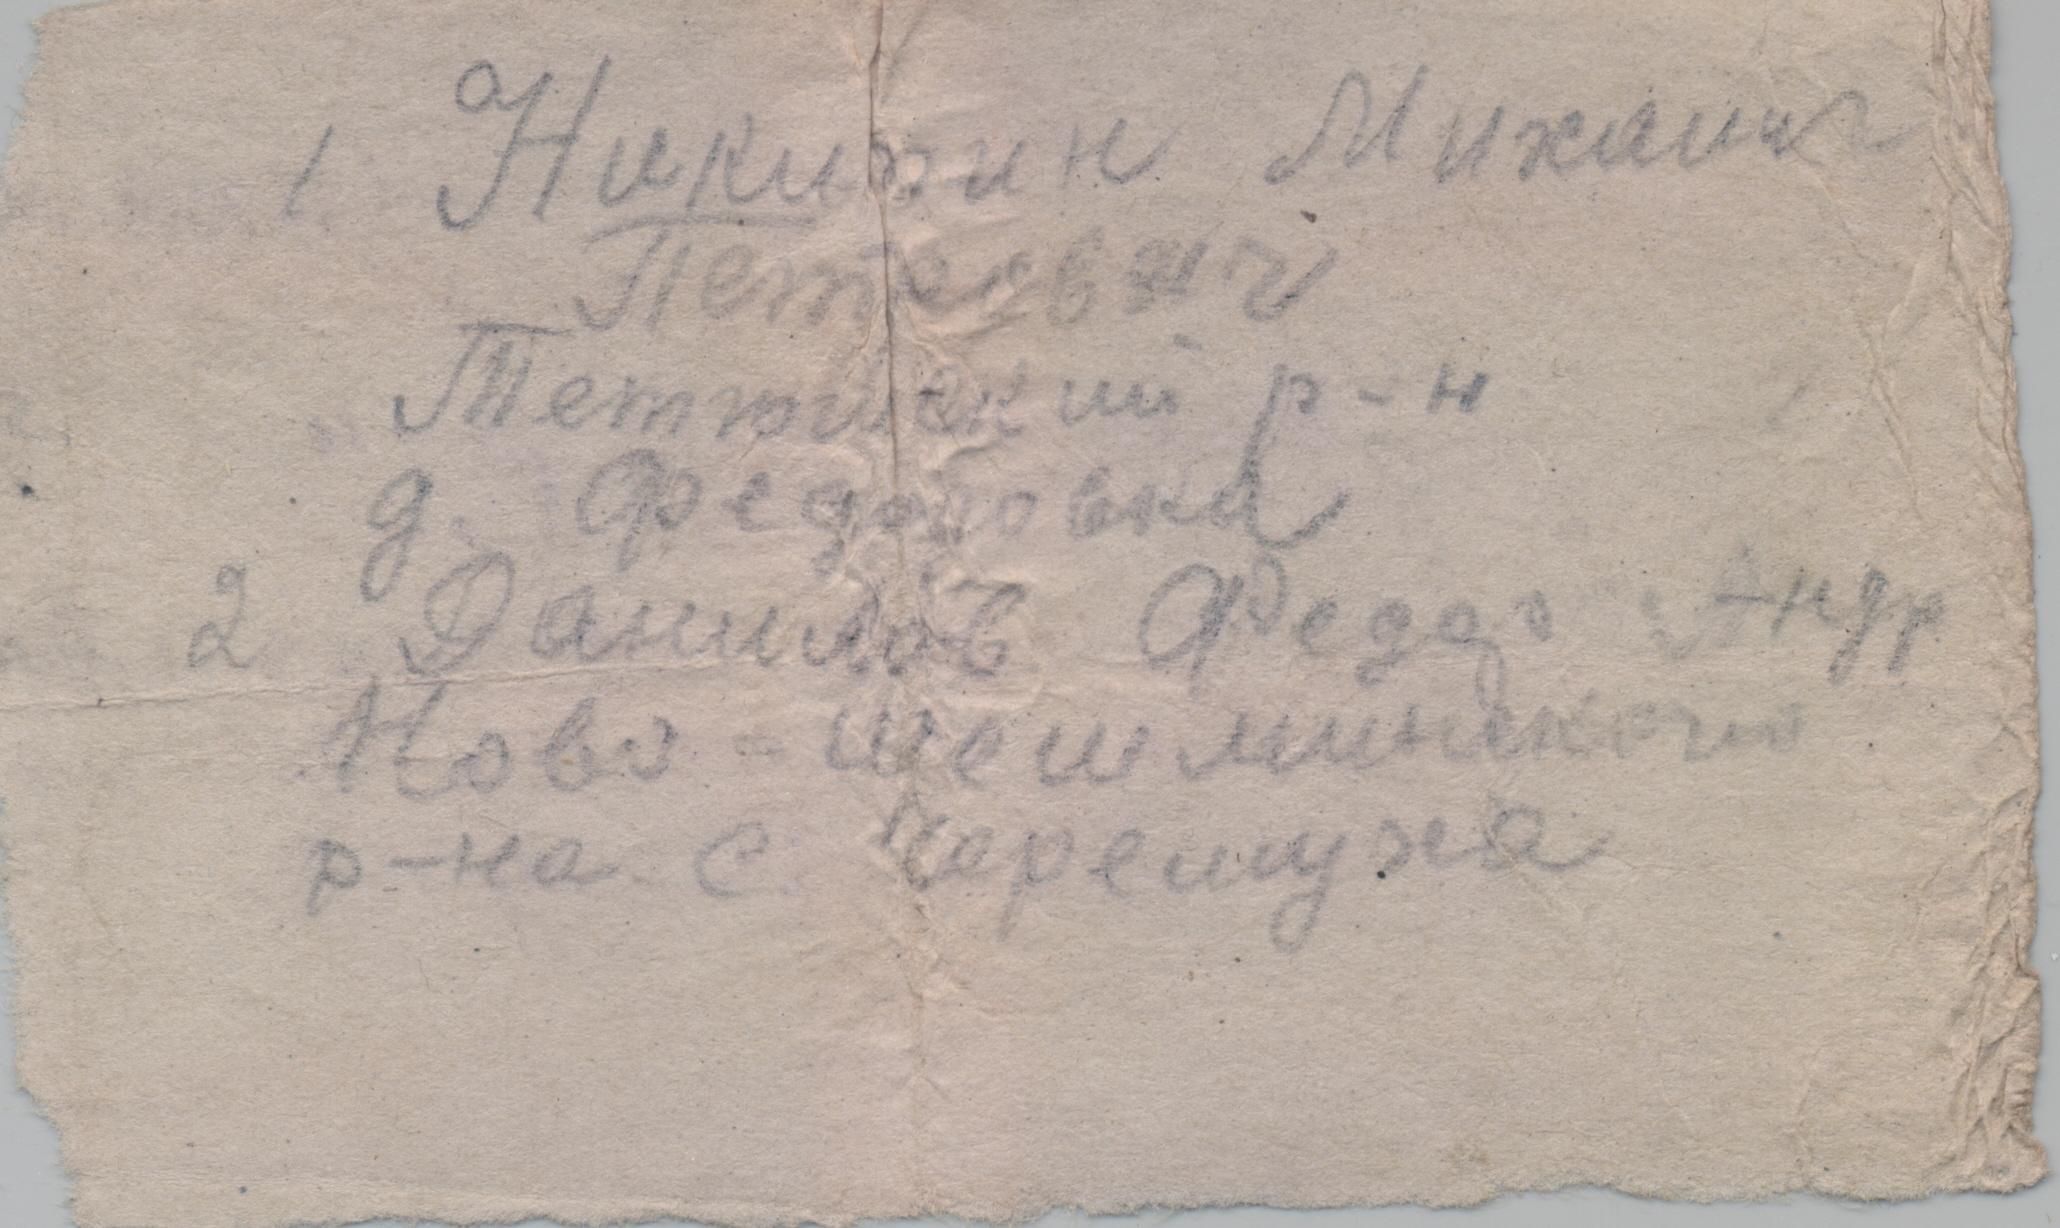 1 Никитин Михаил
Петрович
Тетюшский р-н
д. Федоровка
2 Данилов Федор Андр
Ново-шешминского
р-на с. Черемуха